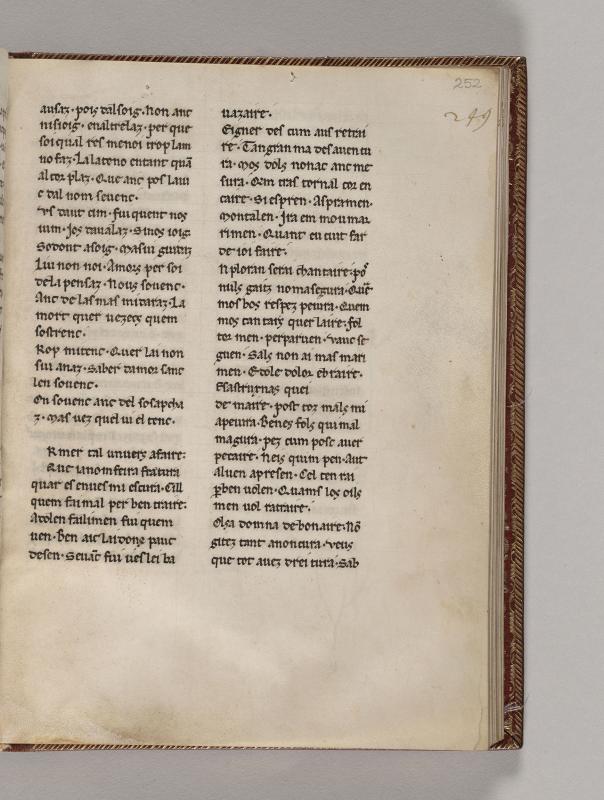 252
249
ausaz · pois dalsoig · Non anc
nisioig · enaltrelaz · per que
soi qual res menoi trop lam
no faz · La lateno entant quā
al cor plaz · Que anc pos laui
c dal nom souenc ·
Vs daut cim · fui quent nos
uim · Jos daualaz · Sinos ioig
So dont asoig · Masui guidaz
Lui non noi · Amors per soi
dela pensaz · Nous souenc ·
Anc de las mas midaraz · La
mort quer uezecs quem
sostrenc ·
Rop mitenc · Quer lai non
fui anaz · Saber damor sanc
len souenc ·
On souenc anc del sosapcha
z · Mas uez quel ui el tenc ·
R mer tal uniuers afaire:
Quc ianom feira fratura
quar es enues mi escura · Cill
quem fai mal per ben traire:
Atolen failimen fui quem
uen · Ben aic lai donc pauc
desen · Seuāc fui ues lei ba
uazaire ·
Eigner ves cum aus retrai
re · Tangran ma desauentu
ra · Mos dols nonac anc me
sura · Qan tras tornal cor en
caire · Si espren · Aspramen ·
Montalen · Ira em mou mar
rimen · Quant eu cuit far
de ioi faire ·
N ploran serai chantaire: po
nuls gaitz nomasegura · Quē
mos bos respez peiura · Quem
mos cantars quer laire: fol
tor men · perparuen · Vauc se
guen · Sals non ai mas mari
men · E dole dolor ebraire ·
Esastrurnas quei
de maire · post toz mals mi
apeiura · Benes fols qui mal
magura · pez cum posc auer
pecaire · Neis quim pen · Aut
al uen apresen · Cel ten rai
ꝑben uolen · Quams los oils
men uol tratraire ·
Olsa domna de bonaire · Nō
gitez tant anoncura · Veus
que tot auez drei tura · Sab